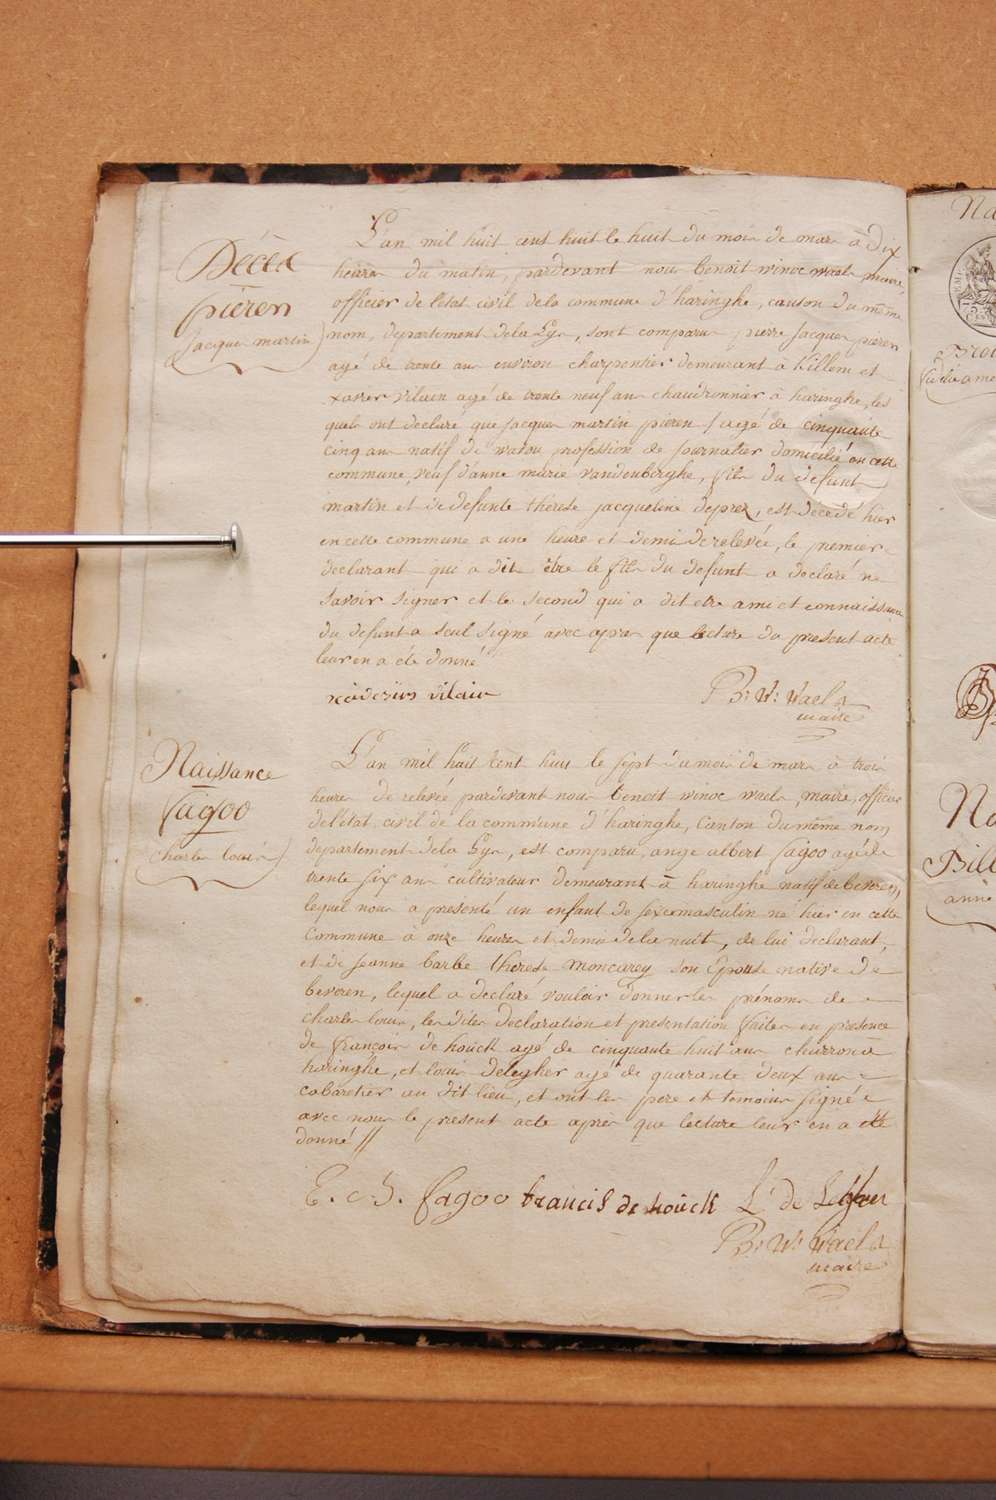 Décès
pieren
(Jacques martin)
L'an mil huit cent huit le huit du mois de mars à dix
heures du matin, pardevant nous benoit winoc waels maire,
officier de l'etat civil de la commune d'haringhe, canton du même
nom, departement de la Lys, sont comparus pierre Jacques pieren
agé de trente ans environ charpentier demeurant à Killem et
xavier vilain agé de trente neuf ans chaudronnier à haringhe, les
quels ont declaré que jacques martin pieren / agé de cinquante
cinq ans natif de watou profession de journalier domicilié en cette
commune, veuf d'anne marie vandenberghe, fils du defunt
martin et de defunte therese jacqueline deprez, est décedé hier
en cette commune a une heure et demi de relevée, le premier
declarant qui a dit être le fils du defunt a declaré ne
savoir signer et le second qui a dit etre ami et connaissance
du defunt a seul signé avec apres que lecture du present acte
leur en a été donné
vilain
B: W: Waels
maire
Naissance
fagoo
(charles louis)
L'an mil huit cent huit le sept du mois de mars à trois
heures de relevée pardevant nous benoit winoc waels, maire, officier
de l'etat civil de la commune d'haringhe, Canton du même nom
departement de la Lys, est comparu, ange albert fagoo agé de
trente six ans cultivateur demeurant à haringhe natif de beveren,
lequel nous a presenté un enfant de sexe masculin né hier en cette
commune à onze heures et demie de la nuit, de lui declarant,
et de Jeanne barbe therese moncarey son Epouse native de
beveren, lequel a declaré vouloir donner les prénoms de
charles louis, les dites declaration et presentation faites en presence
de françois de houck agé de cinquante huit ans charron à
haringhe, et louis delegher agé de quarante deux ans
cabaretier au dit lieu, et ont les pere et temoins signé
avec nous le present acte apres que lecture leur en a été
donné //
fagoo francis de houck L: de Legher
B: W: Waels
maire
Na
Na
Bill
anne